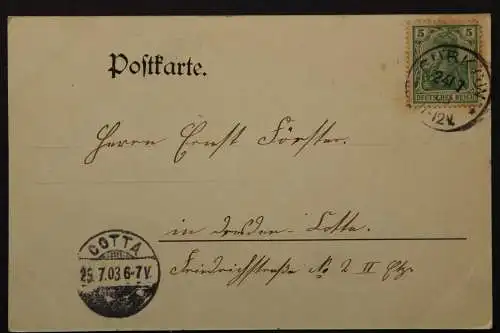 5 5
DEUTSCHES REICH
24/7
7-12V.
Postkarte.
Herrn Ernst Förster.
in Dresden-Cotta.
Friedrichstraße No 2 II Etg.
COTTA
25.7.03 6-7V.